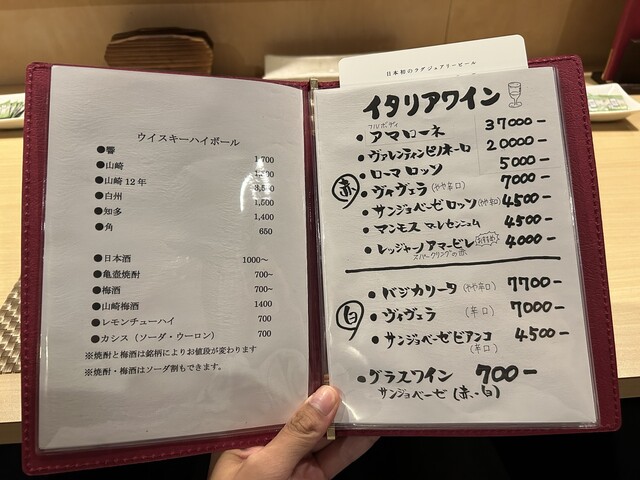 ウイスキーハイボール
●響 1,700
●山崎
●山崎12年
●白州 1,500
●知多 1,400
●角 650
●日本酒 1000~
●亀壺焼酎 700~
●梅酒 700~
●山崎梅酒 1400
●レモンチューハイ 700
●カシス(ソーダ・ウーロン) 700
※焼酎と梅酒は銘柄によりお値段が変わります
※焼酎・梅酒はソーダ割もできます。
日本初のラグジュアリービール
イタリアワイン
フルボディ
・アマローネ 37000-
・ヴァレンティンピノネーロ 20000-
赤
・ローマ ロッソ 5000-
・ヴィヴェラ (やや辛口) 7000-
・サンジョベーゼロッソ (やや辛口) 4500-
・マンモス マーレセンニュム 4500-
・レッジャーノアマービレ おすすめ 4000-
スパークリングの赤
白
・バジカリータ (やや辛口) 7700-
・ヴィヴェラ (辛口) 7000-
・サンジョベーゼビアンコ 4500-
(辛口)
・グラスワイン 700-
サンジョベーゼ (赤・白)